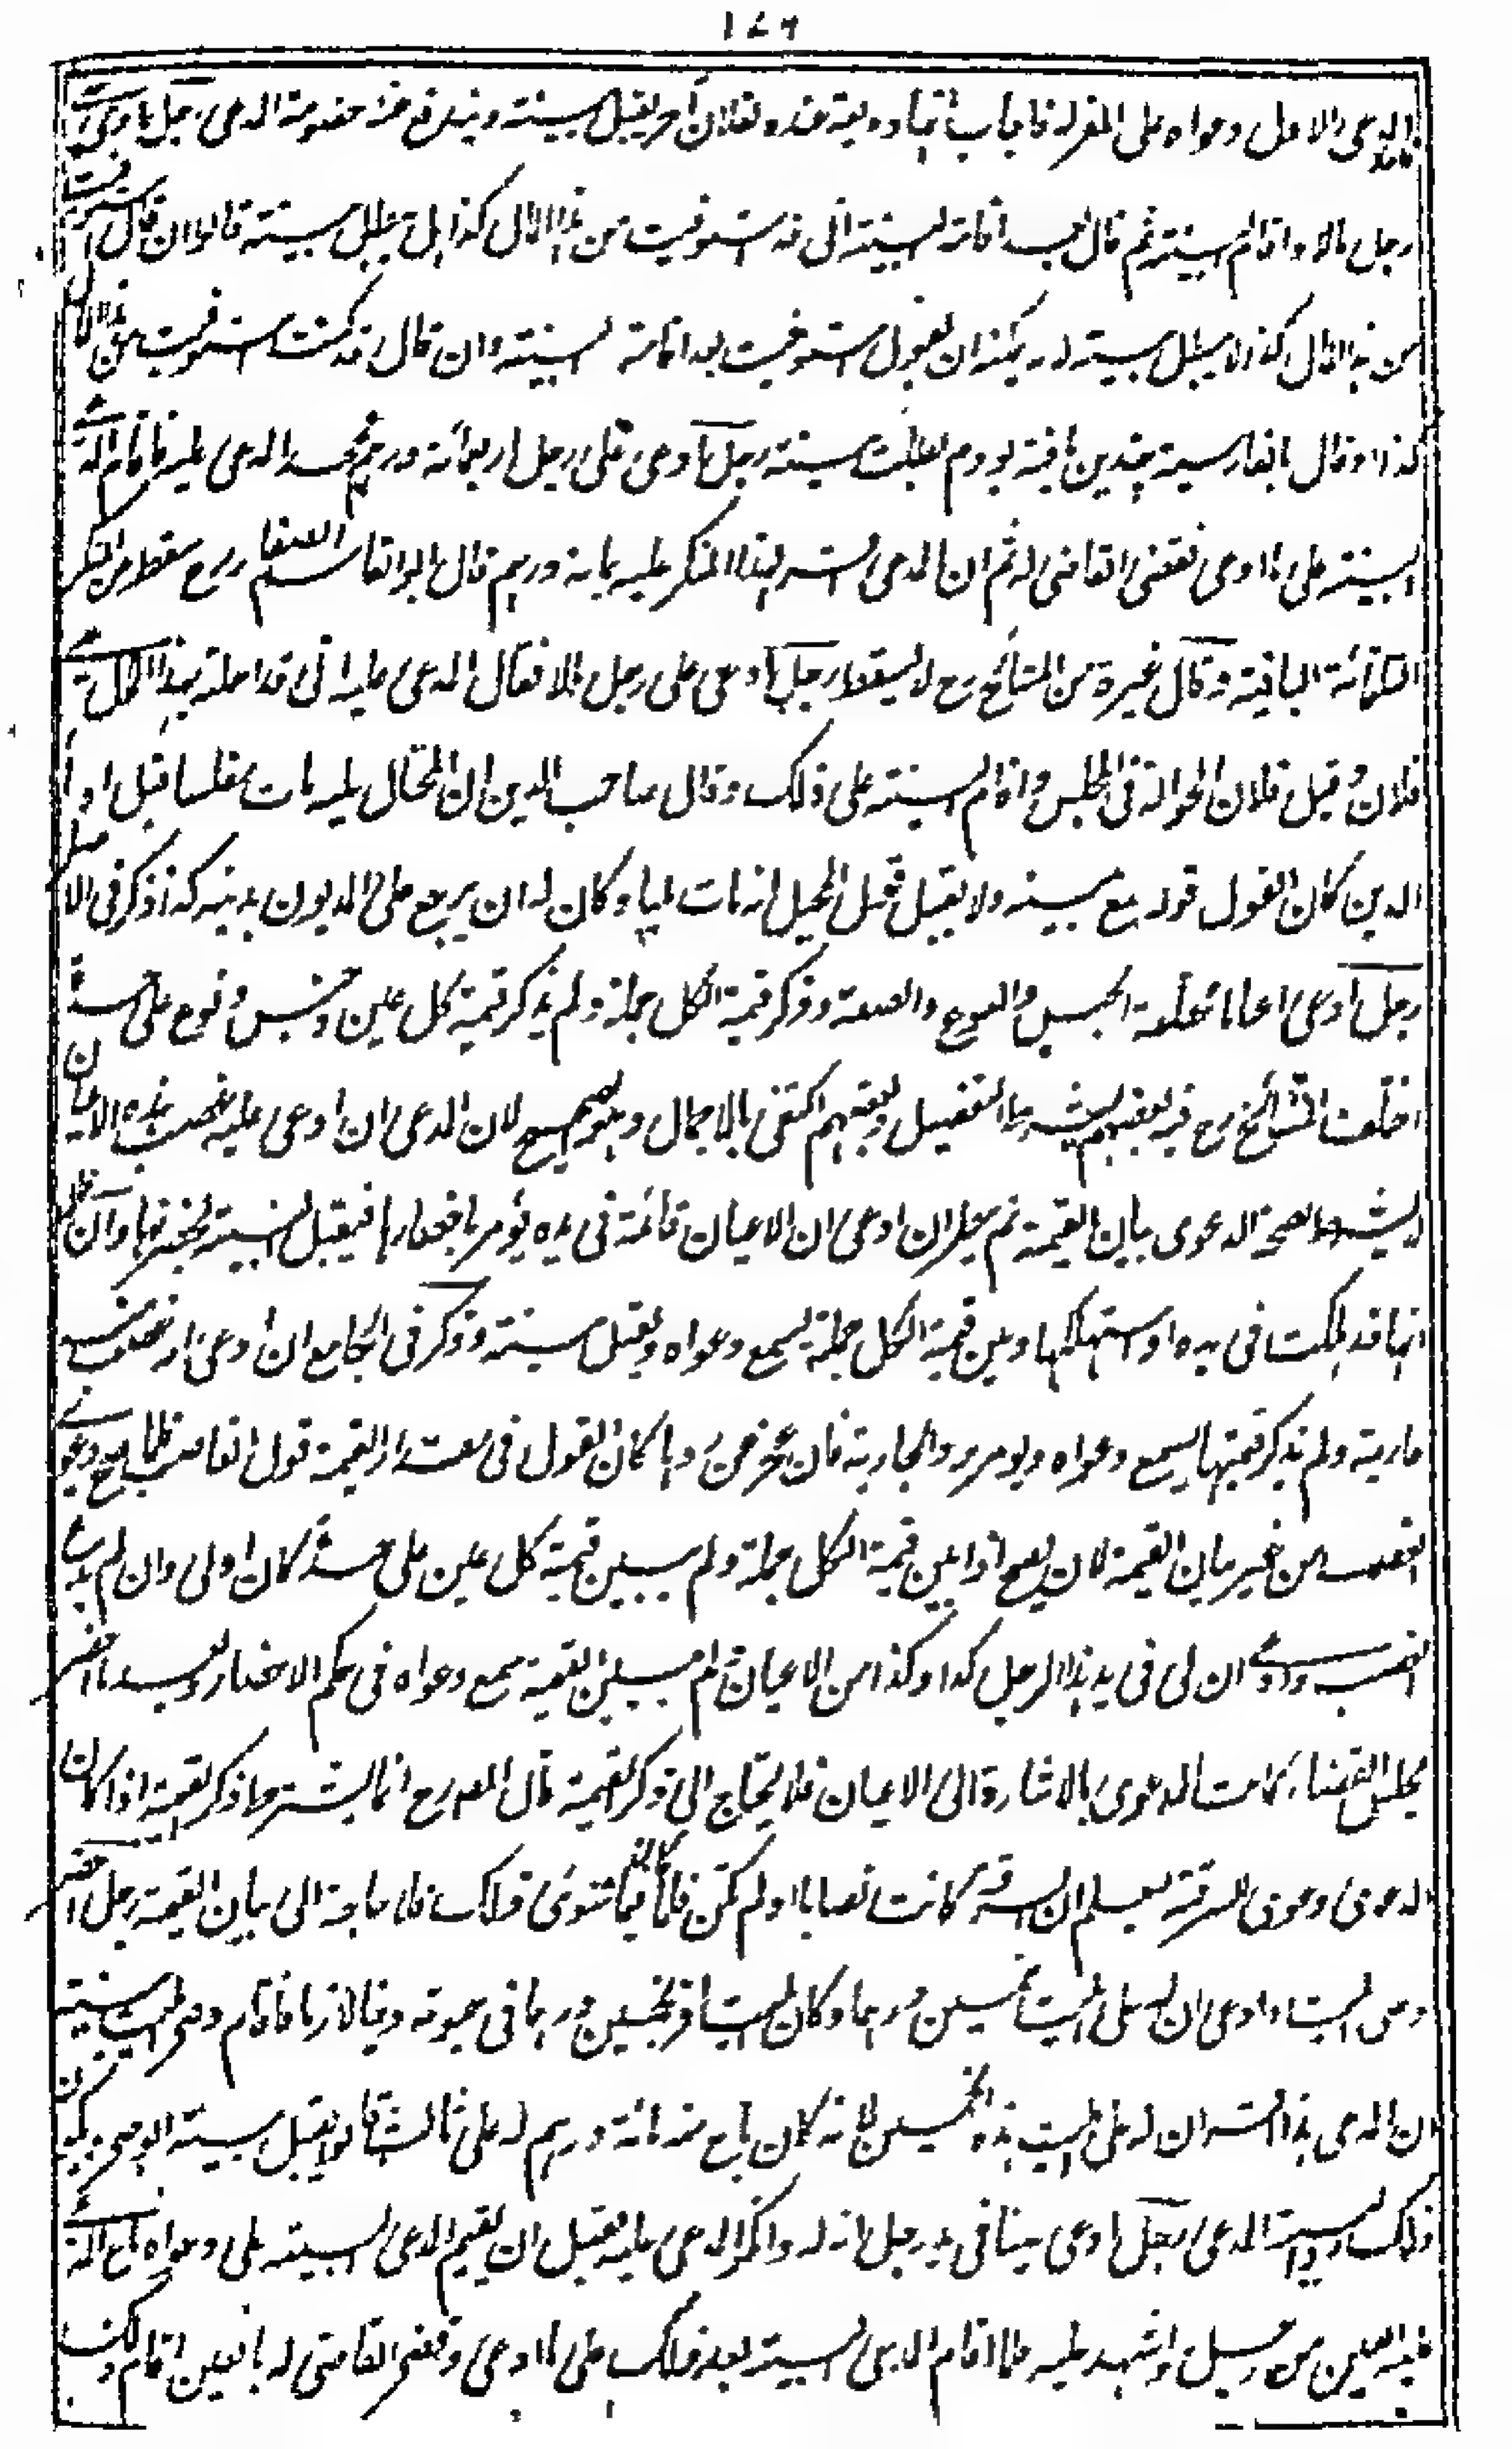 ١٧٩
المدعى الاول دعواه على المقر له فاجاب انها وديعة عنده لفلان آخر يقبل بينته ويندفع عنه خصومة المدعى رجل ادعى على
رجل مالا واقام البينة ثم قال بعد اقامة البينة انى قد استوفيت من هذا المال كذا هل يبطل بينته قالوا ان قال استوفيت
من هذا المال كذا لا يبطل بينته لانه يمكنه ان يقول استوفيت بعد اقامة البينة وان قال قد كنت استوفيت من هذا المال
كذا او قال بالفارسية چندین یافته بودم بطلت بينته رجل ادعى على رجل اربعمائة درهم فجحد المدعى عليه فاقام المدعى
البينة على ما ادعى فقضى القاضى له ثم ان المدعى اقر لهذا المنكر عليه بمائة درهم قال ابو القاسم الصفار رح سقط عن المنكر
الثلثمائة الباقية وقال غيره من المشائخ رح لا يسقط رجل ادعى على رجل مالا فقال المدعى عليه انى قد احلته بهذا المال على
فلان وقبل فلان الحوالة فى المجلس واقام البينة على ذلك وقال صاحب الدين ان المحتال عليه مات مفلسا قبل اداء
الدين كان القول قوله مع يمينه ولا يقبل قول المحيل انه مات مليا وكان له ان يرجع على المديون بدينه كذا ذكر فى الاصل
رجل ادعى اعيانا مختلفة الجنس والنوع والصفة وذكر قيمة الكل جملة ولم يذكر قيمة كل عين وجنس ونوع على حدة
اختلف المشائخ رح فيه بعضهم يشترط التفصيل وبعضهم اكتفى بالاجمال وهو الصحيح لان المدعى ان ادعى عليه غصب هذه الاعيان
لا يشترط لصحة الدعوى بيان القيمة ثم ينظر ان ادعى ان الاعيان قائمة فى يده يؤمر باحضارها فيقبل البينة بحضرتها وان قال
انها قد هلكت فى يده او استهلكها وبين قيمة الكل جملة تسمع دعواه ويقبل بينته وذكر فى الجامع ان ادعى انه غصب منه
جارية ولم يذكر قيمتها يسمع دعواه ويؤمر برد الجارية فان عجز عن ردها كان القول فى مقدار القيمة قول الغاصب فلما صح دعوى
الغصب من غير بيان القيمة فلان يصح اذا بين قيمة الكل جملة ولم يبين قيمة كل عين على حدة كان اولى وان لم يدع
الغصب وادعى ان لى فى يد هذا الرجل كذا وكذا من الاعيان ولم يبين القيمة يسمع دعواه فى حكم الاحضار وبعد ما احضر
مجلس القضاء كانت الدعوى بالاشارة الى الاعيان فلا يحتاج الى ذكر القيمة قال المصنف رح انما يشترط ذكر القيمة اذا كان
الدعوى دعوى السرقة ليعلم ان السرقة كانت نصابا او لم تكن فاما فيما سوى ذلك فلا حاجة الى بيان القيمة رجل احضر
وصى الميت وادعى ان له على الميت خمسين درهما وكان الميت اقر بخمسين درهما فى حيوته دينا لازما فاقام وصى الميت بينة
ان المدعى هذا اقر ان له على الميت هذه الخمسين لانه كان باع منه مائة درهم له على فلان قالوا يقبل بينة الوصى ويكون
ذلك رد بينة المدعى رجل ادعى عينا فى يد رجل انه له وانكر المدعى عليه فقبل ان يقيم المدعى البينة على دعواه باع المدعى
عليه العين من رجل واشهد عليه فلما اقام المدعى البينة بعد ذلك على ما ادعى وقضى القاضى له بالعين اقام ذلك